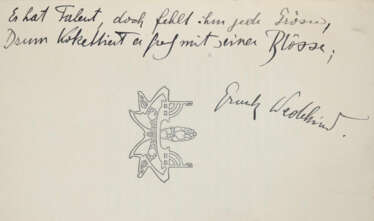 Er hat Talent, doch fehlt ihm jede Grösse,
Drum kokettiert er frech mit seiner Blösse;
Frank Wedekind.